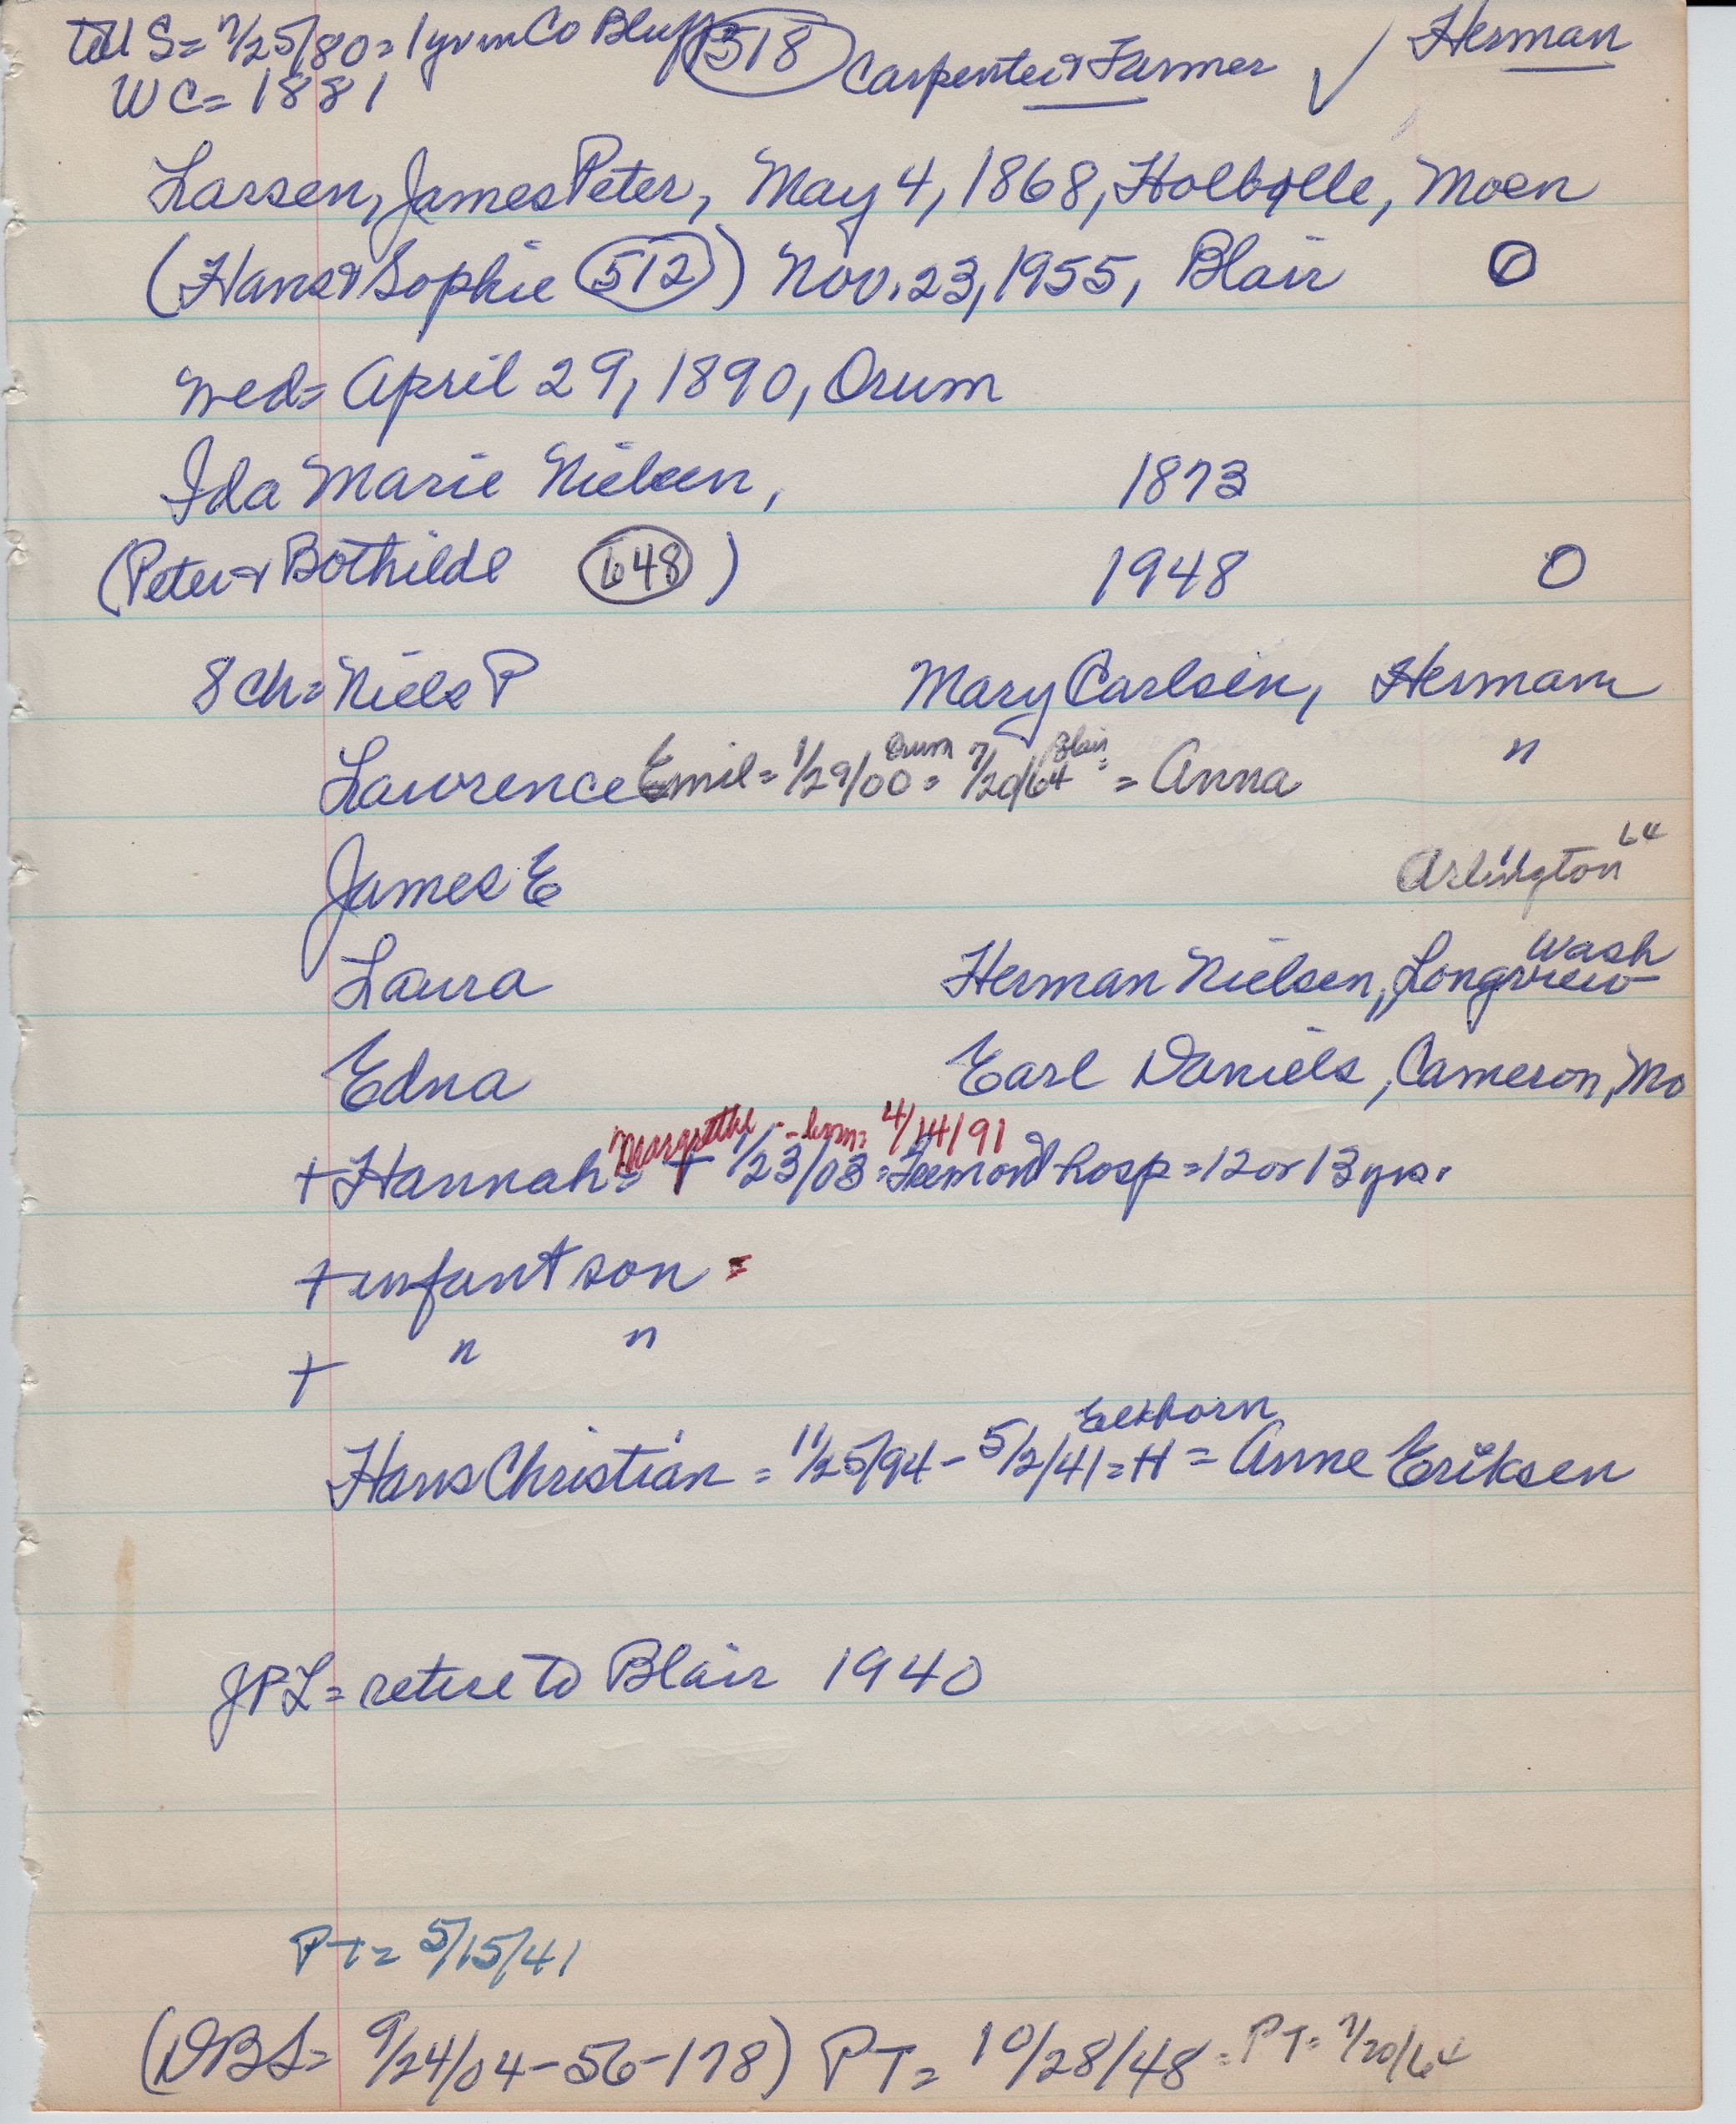 to U S = 7/25/80 = 1 yr in Co Bluffs 518 Carpenter & Farmer ✓ Herman
WC = 1881
Larsen, James Peter, May 4, 1868, Holbølle, Moen
(Hans & Sophie 512) Nov. 23, 1955, Blair O
wed = April 29, 1890, Orum
Ida Marie Nielsen, 1873
(Peter & Bothilde 648) 1948 O
8 ch = Niels P Mary Carlsen, Herman
Orum Blair
Lawrence Emil = 1/29/00 = 7/20/64 = Anna "
64
James E Arlington
Wash
Laura Herman Nielsen, Longview
Edna Earl Daniels, Cameron, Mo
Margrethe -- born = 4/14/91
+ Hannah = + 1/23/03 = Fremont hosp = 12 or 13 yrs.
+ infant son =
+ " "
Elkhorn
Hans Christian = 11/25/94 - 5/2/41 = H = Anne Eriksen
JPL = retire to Blair 1940
PT = 5/15/41
(DBS = 9/24/04 - 56 - 178) PT = 10/28/48 = PT = 7/20/64